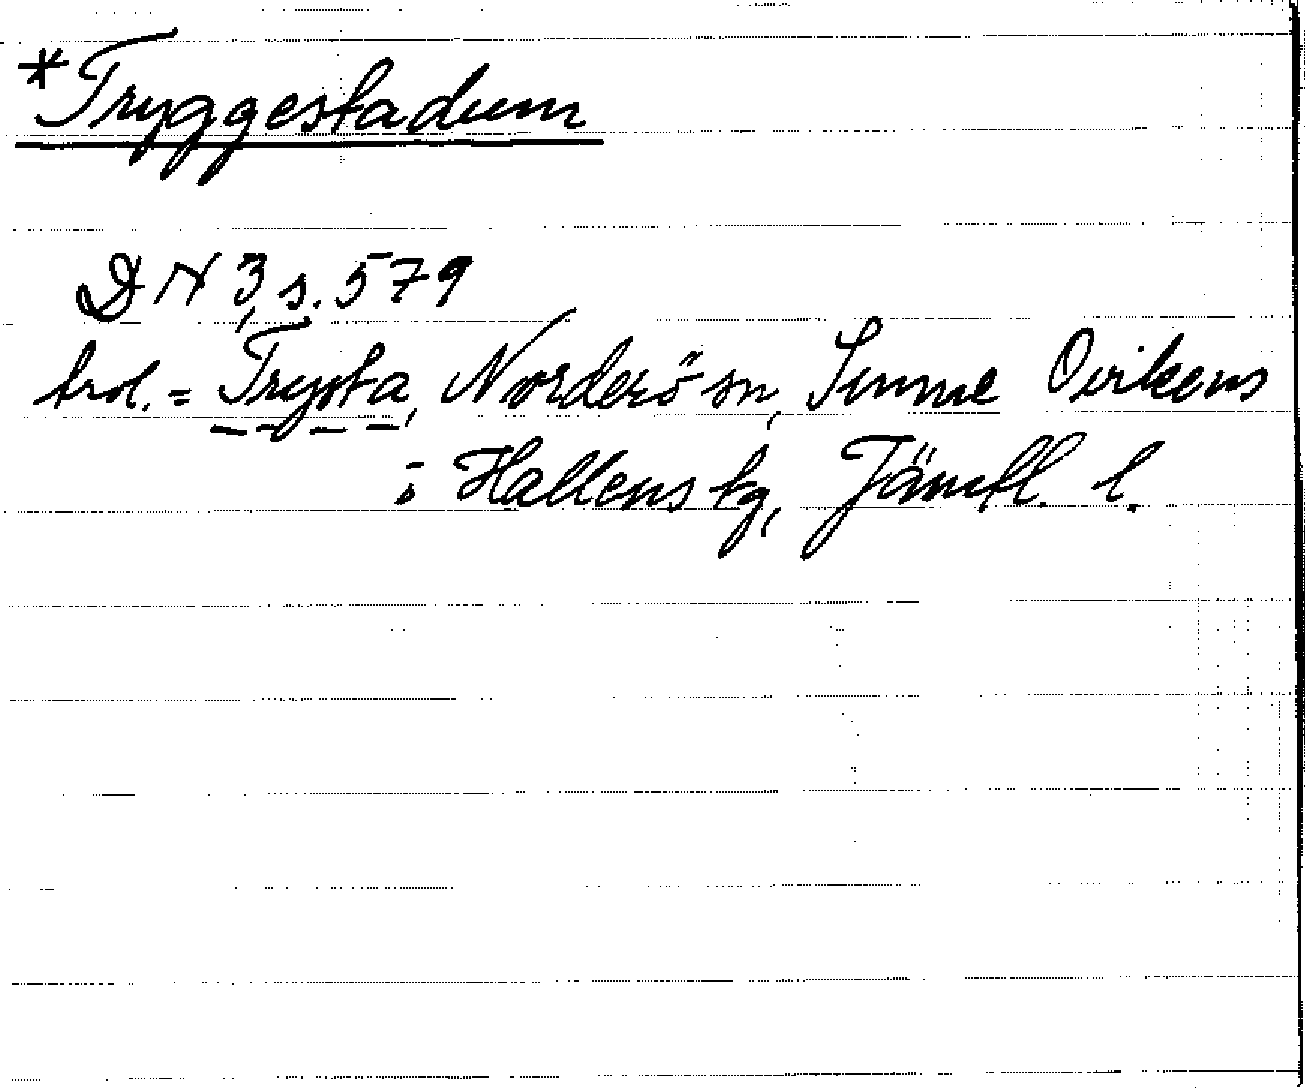 *Tryggestadum
DN 3, s. 579
trol. = Trysta, Norderö sn, Sunne Ovikens
: Hallens tg, Jämtl. l.